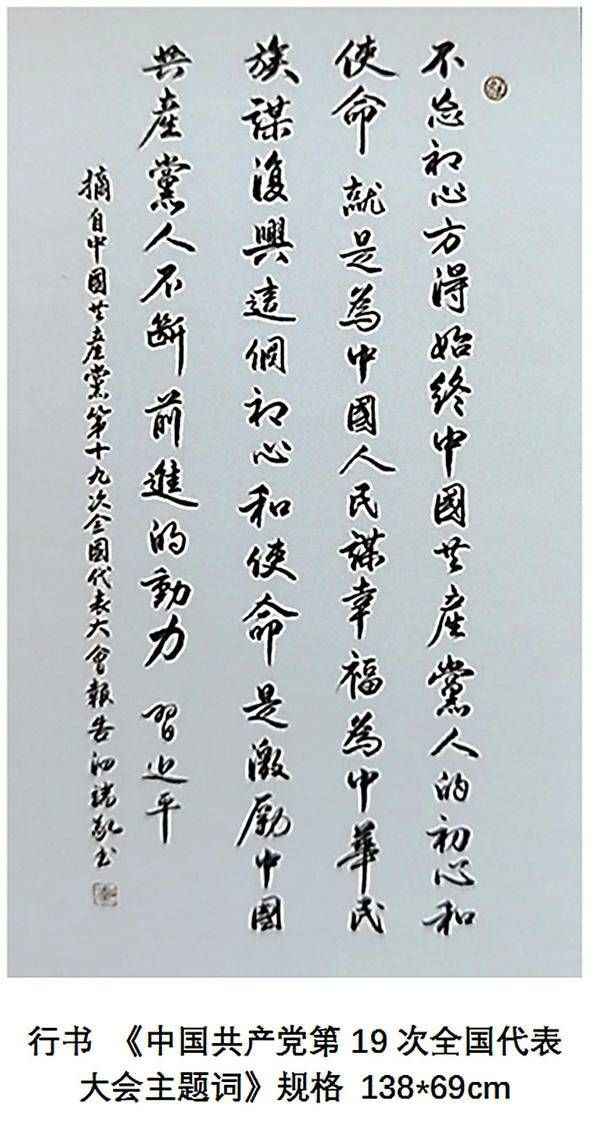 不忘初心方得始终中國共產黨人的初心和
使命就是為中國人民謀幸福為中華民
族謀復興這個初心和使命是激勵中國
共產黨人不斷前進的動力 習近平
摘自中國共產黨第十九次全國代表大會報告
行书 《中国共产党第 19 次全国代表
大会主题词》规格 138*69cm